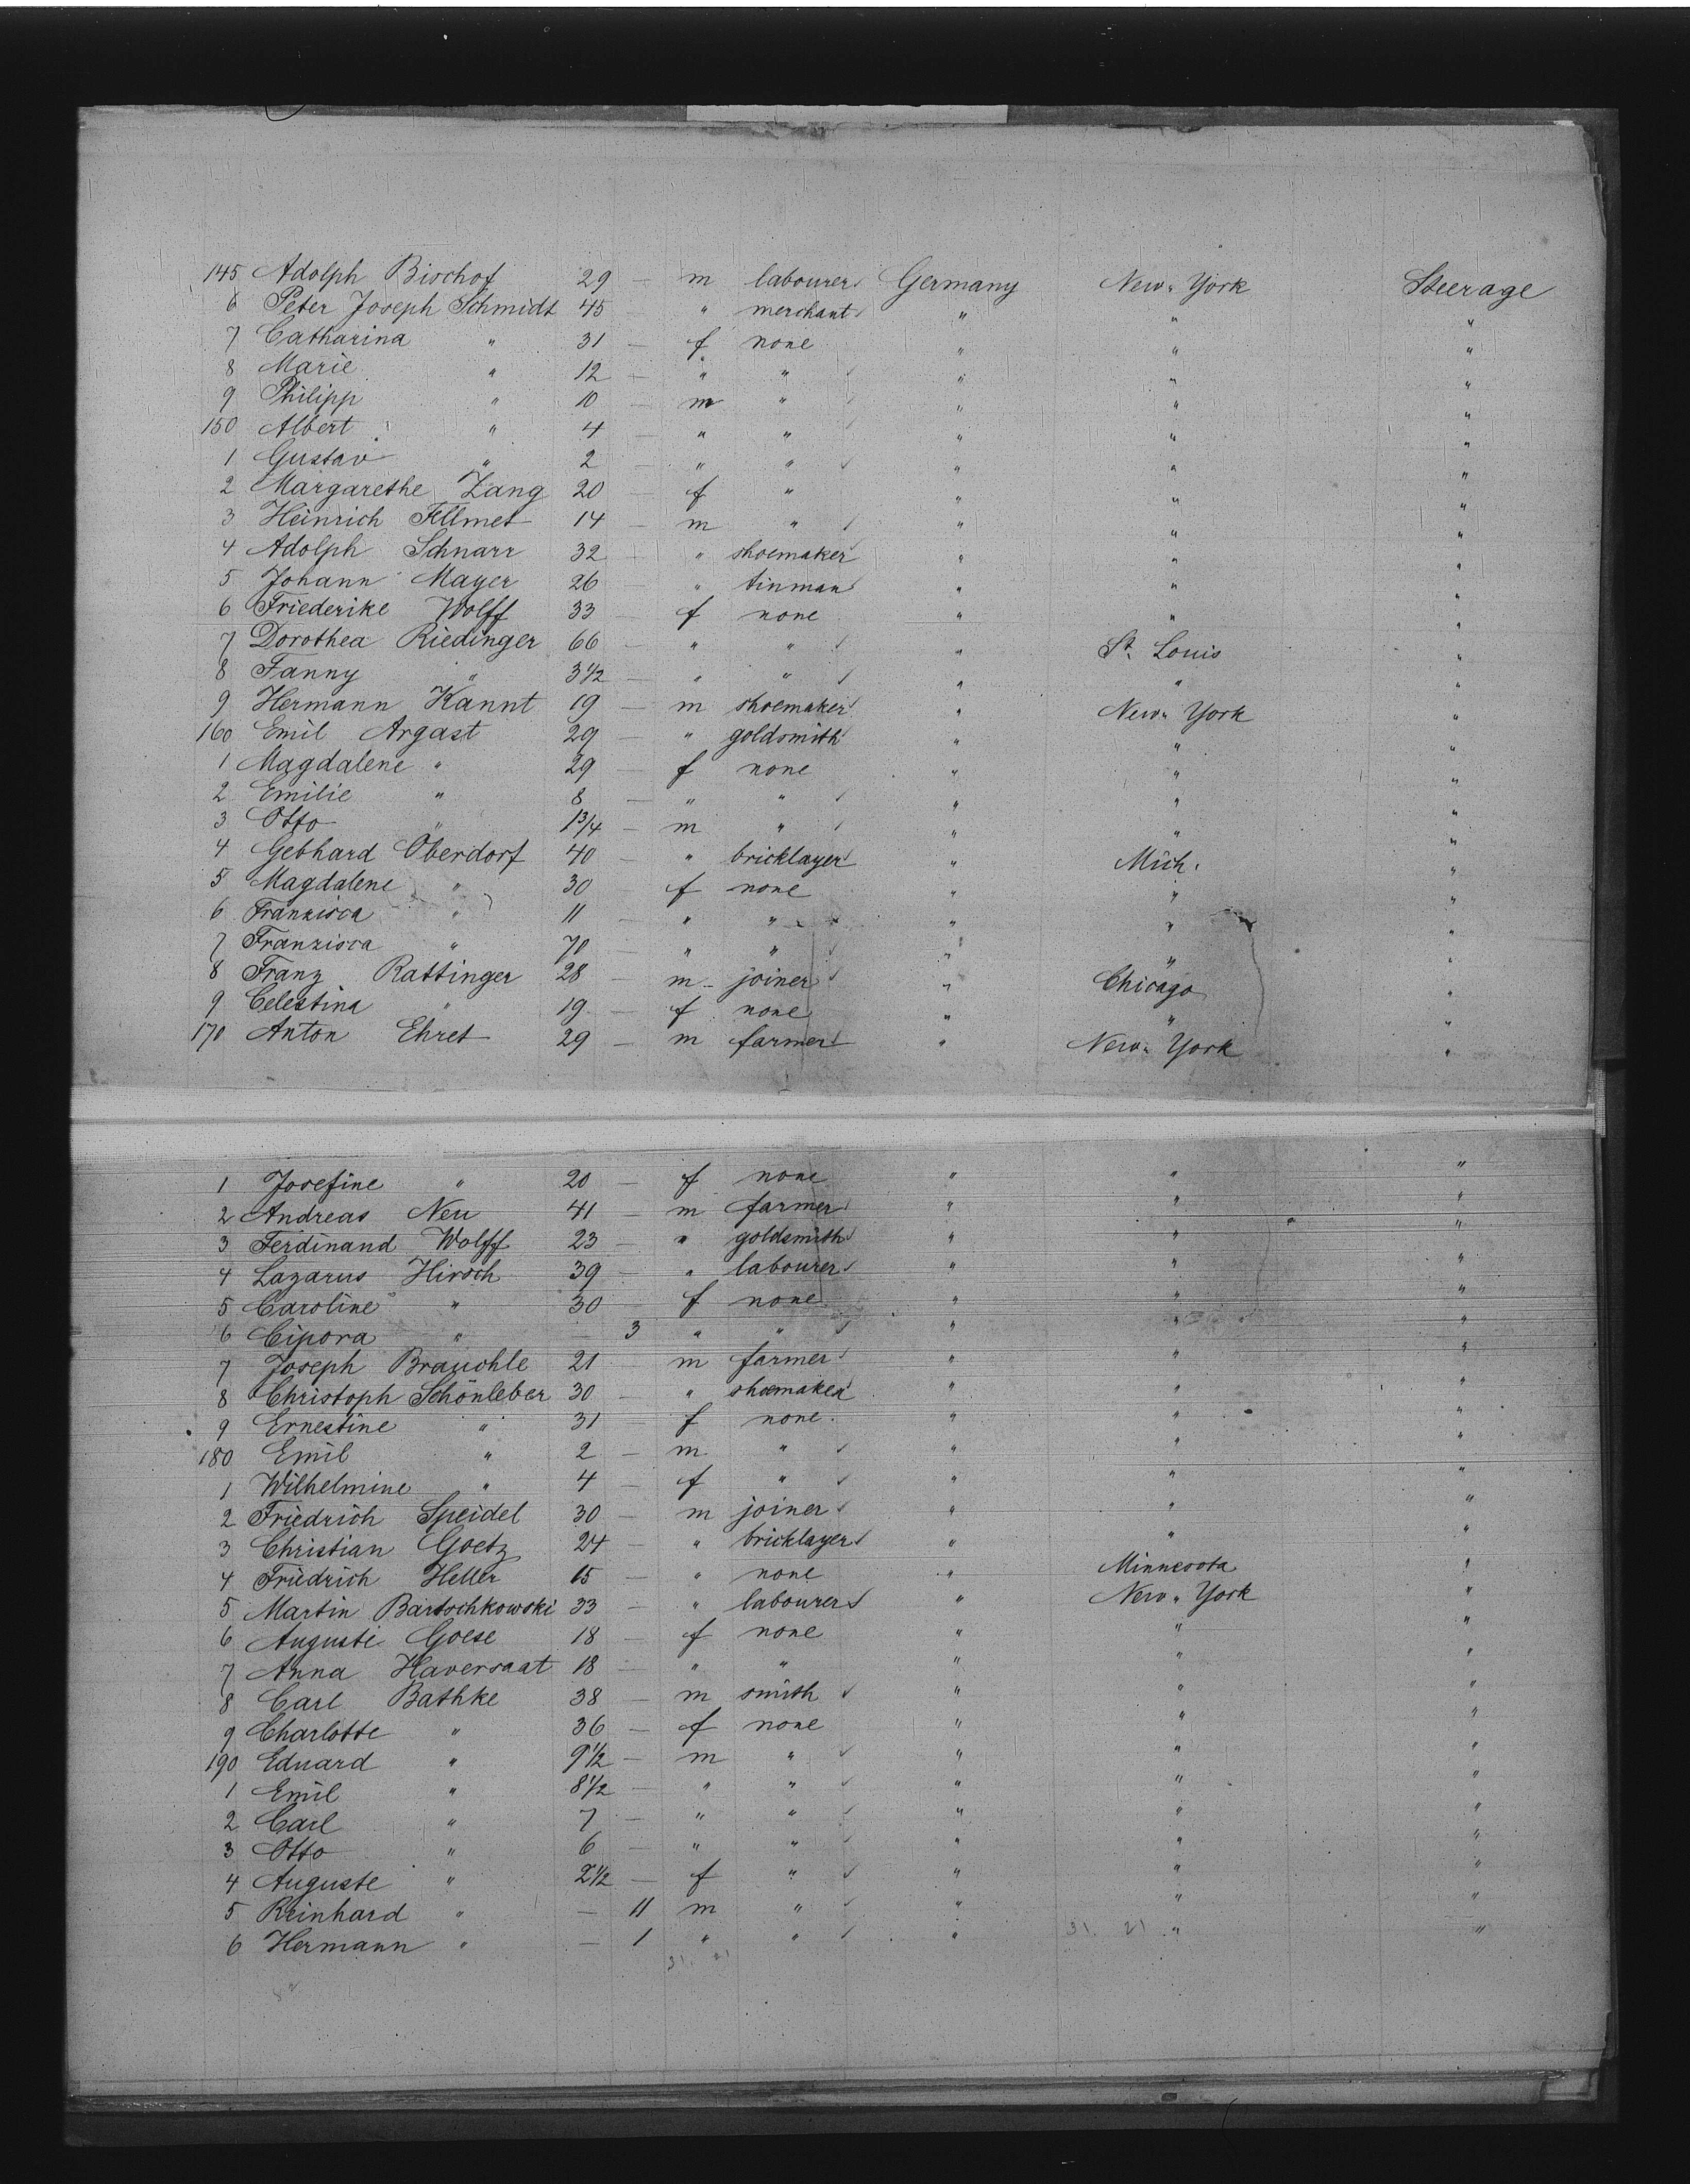 145 Adolph Bischof 29 — m labourer Germany New-York Steerage
6 Peter Joseph Schmidt 45 — " merchant " " "
7 Catharina " 31 — f none " " "
8 Marie " 12 — " " " " "
9 Philipp " 10 — m " " " "
150 Albert " 4 — " " " " "
1 Gustav " 2 — " " " " "
2 Margarethe Zang 20 — f " " " "
3 Heinrich Fellmet 14 — m " " " "
4 Adolph Schnarr 32 — " shoemaker " " "
5 Johann Mayer 26 — " tinman " " "
6 Friederike Wolff 33 — f none " " "
7 Dorothea Riedinger 66 — " " " St. Louis "
8 Fanny " 3 1/2 — " " " " "
9 Hermann Kannt 19 — m shoemaker " New-York "
160 Emil Argast 29 — " goldsmith " " "
1 Magdalene " 29 — f none " " "
2 Emilie " 8 — " " " " "
3 Otto " 1 3/4 — m " " " "
4 Gebhard Oberdorf 40 — " bricklayer " Mich. "
5 Magdalene " 30 — f none " " "
6 Franzisca " 11 — " " " " "
7 Franzisca " 70 — " " " " "
8 Franz Rattinger 28 — m joiner " Chicago "
9 Celestina " 19 — f none " " "
170 Anton Ehret 29 — m farmer " New-York "
1 Josefine " 20 — f none " " "
2 Andreas Neu 41 — m farmer " " "
3 Ferdinand Wolff 23 — " goldsmith " " "
4 Lazarus Hirsch 39 — " labourer " " "
5 Caroline " 30 — f none " " "
6 Cipora " — 3 " " " " "
7 Joseph Brauchle 21 m farmer " " "
8 Christoph Schönleber 30 — " shoemaker " " "
9 Ernestine " 31 — f none " " "
180 Emil " 2 — m " " " "
1 Wilhelmine " 4 — f " " " "
2 Friedrich Speidel 30 — m joiner " " "
3 Christian Goetz 24 — " bricklayer " " "
4 Friedrich Heller 15 — " none " Minnesota "
5 Martin Bartschkowski 33 — " labourer " New-York "
6 Auguste Goese 18 — f none " " "
7 Anna Haversaat 18 — " " " " "
8 Carl Bathke 38 — m smith " " "
9 Charlotte " 36 — f none " " "
190 Eduard " 9 1/2 — m " " " "
1 Emil " 8 1/2 — " " " " "
2 Carl " 7 — " " " " "
3 Otto " 6 — " " " " "
4 Auguste " 2 1/2 — f " " " "
5 Reinhard " — 11 m " " " "
6 Hermann " — 1 " " " " "